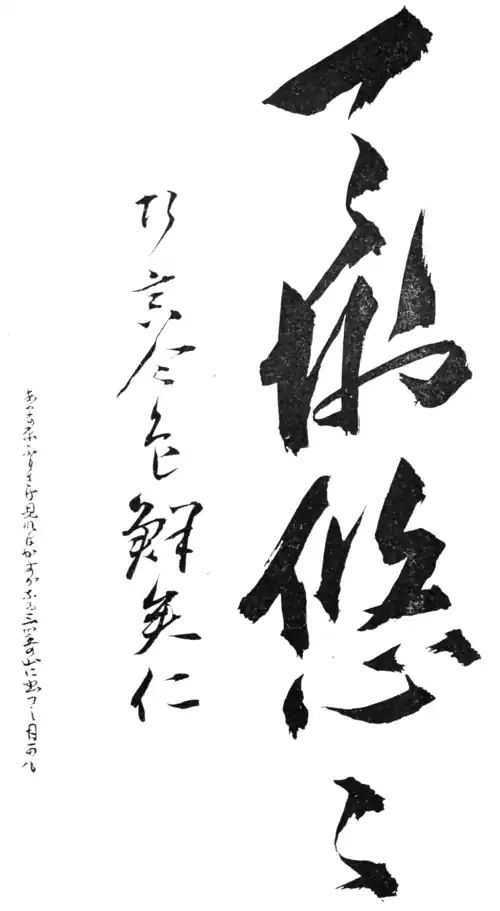 悠々
巧言令色鮮矣仁
あまの原ふりさけ見れはかすかなる三笠の山に出てし月可も